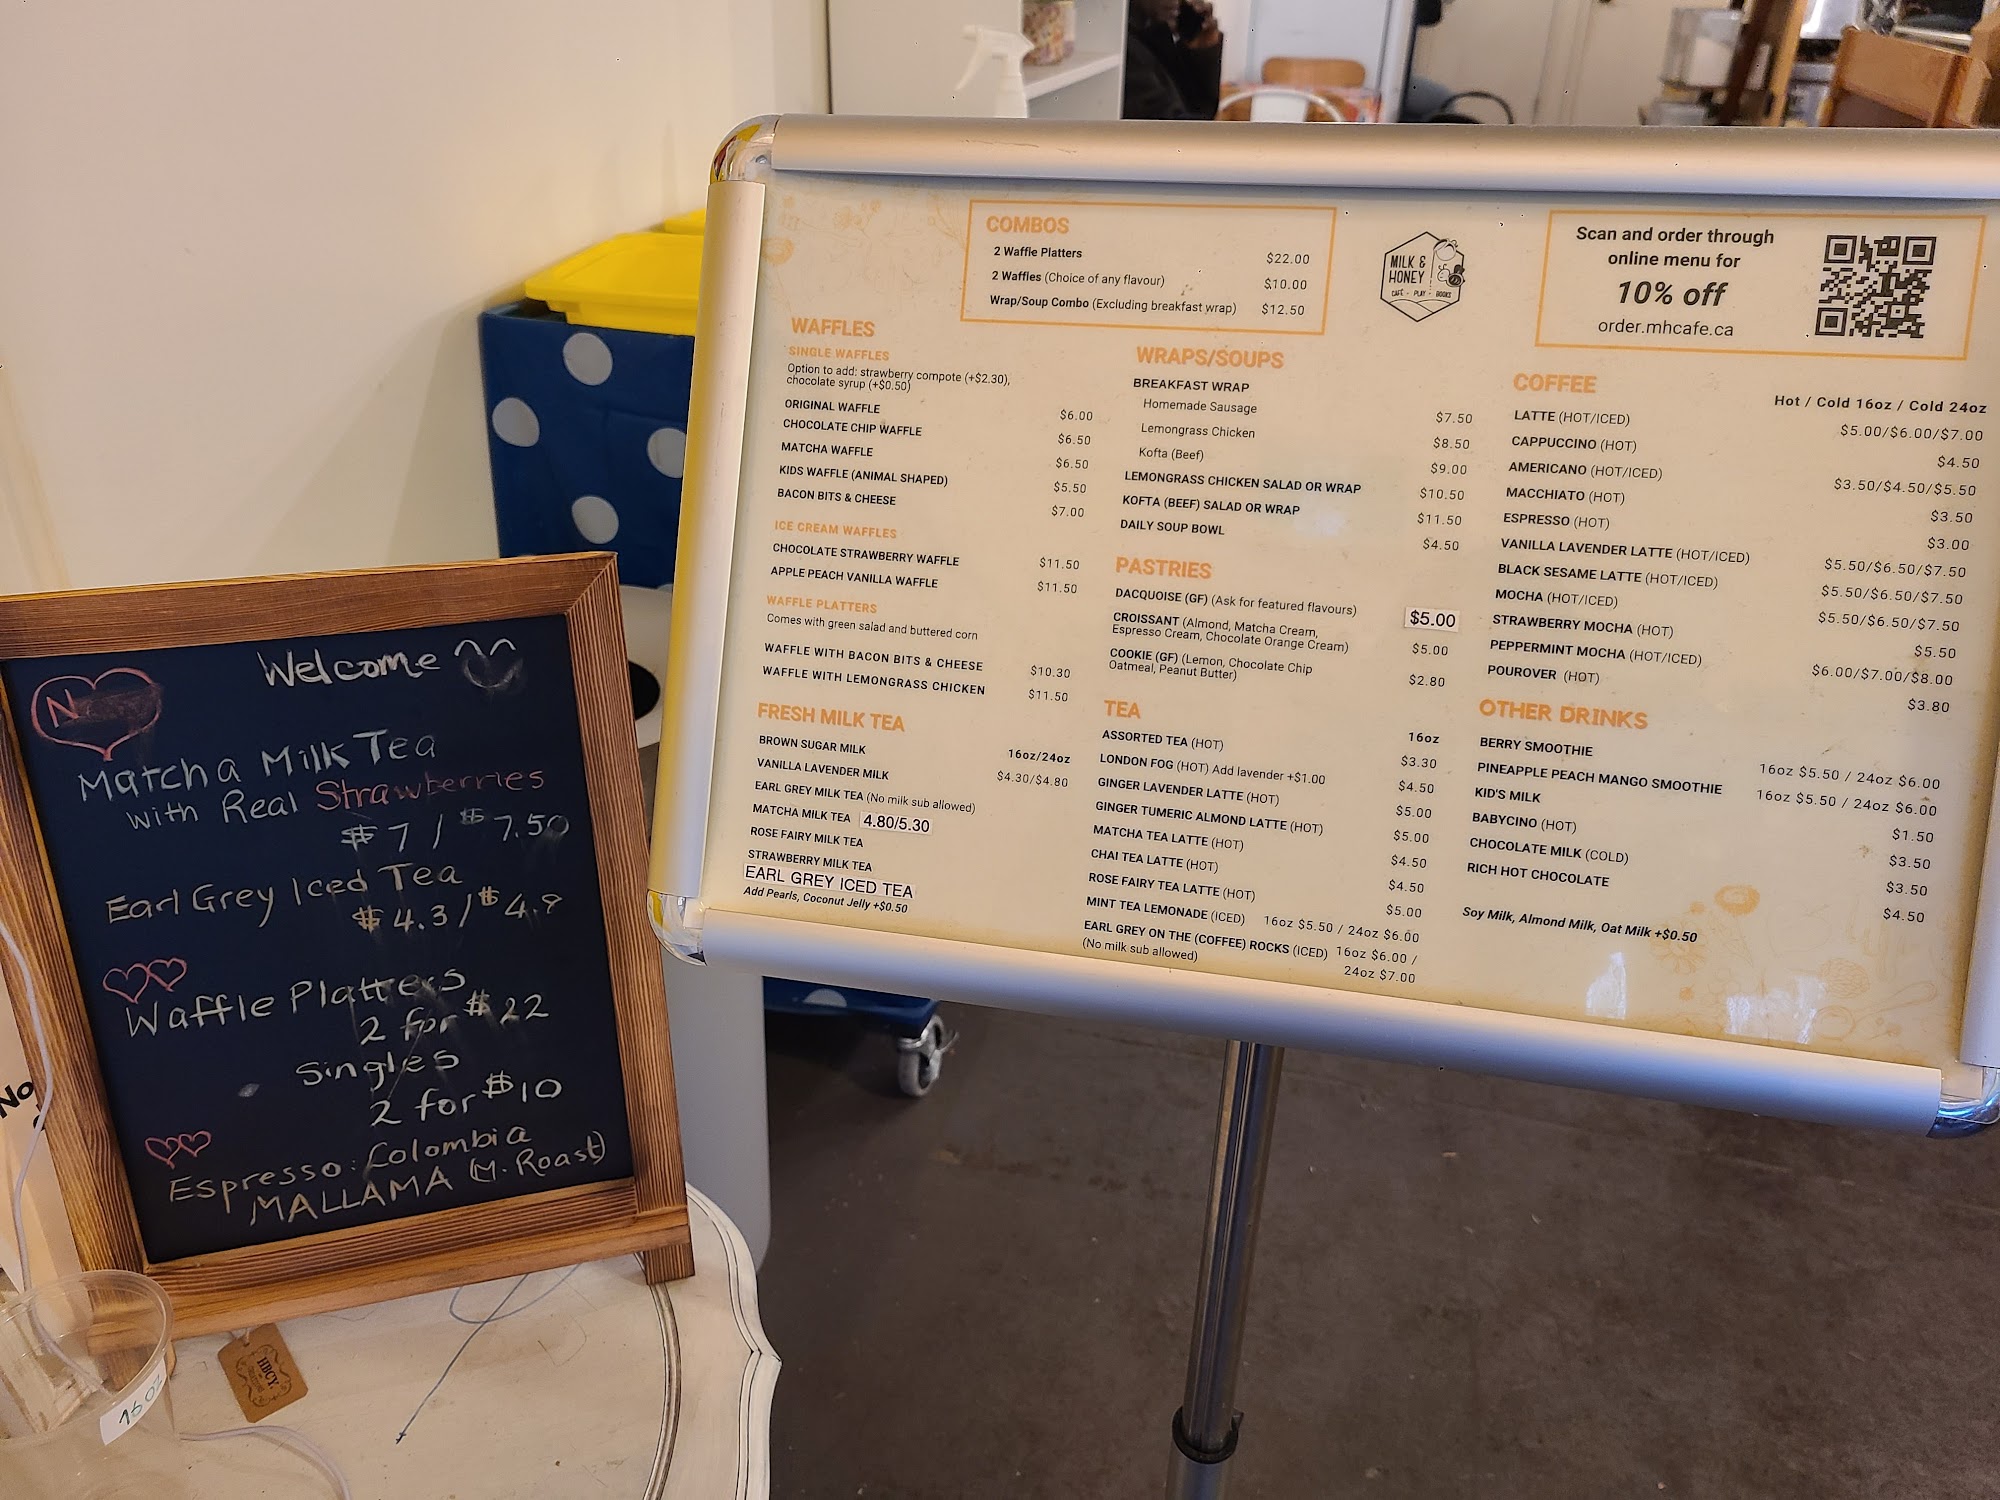 Welcome
N
Matcha Milk Tea
with Real Strawberries
$7 / $7.50
Earl Grey Iced Tea
$4.3 / $4.8
Waffle Platters
2 for $22
Singles
2 for $10
Espresso: Colombia
MALLAMA (M. Roast)
No
16oz
HBCY.
COMBOS
2 Waffle Platters $22.00
2 Waffles (Choice of any flavour) $10.00
Wrap/Soup Combo (Excluding breakfast wrap) $12.50
MILK &
HONEY
CAFÉ - PLAY - BOOKS
Scan and order through
online menu for
10% off
order.mhcafe.ca
WAFFLES
SINGLE WAFFLES
Option to add: strawberry compote (+$2.30),
chocolate syrup (+$0.50)
ORIGINAL WAFFLE $6.00
CHOCOLATE CHIP WAFFLE $6.50
MATCHA WAFFLE $6.50
KIDS WAFFLE (ANIMAL SHAPED) $5.50
BACON BITS & CHEESE $7.00
ICE CREAM WAFFLES
CHOCOLATE STRAWBERRY WAFFLE $11.50
APPLE PEACH VANILLA WAFFLE $11.50
WAFFLE PLATTERS
Comes with green salad and buttered corn
WAFFLE WITH BACON BITS & CHEESE $10.30
WAFFLE WITH LEMONGRASS CHICKEN $11.50
FRESH MILK TEA
16oz/24oz
BROWN SUGAR MILK $4.30/$4.80
VANILLA LAVENDER MILK
EARL GREY MILK TEA (No milk sub allowed)
MATCHA MILK TEA 4.80/5.30
ROSE FAIRY MILK TEA
STRAWBERRY MILK TEA
EARL GREY ICED TEA
Add Pearls, Coconut Jelly +$0.50
WRAPS/SOUPS
BREAKFAST WRAP
Homemade Sausage $7.50
Lemongrass Chicken $8.50
Kofta (Beef) $9.00
LEMONGRASS CHICKEN SALAD OR WRAP $10.50
KOFTA (BEEF) SALAD OR WRAP $11.50
DAILY SOUP BOWL $4.50
PASTRIES
DACQUOISE (GF) (Ask for featured flavours) $5.00
CROISSANT (Almond, Matcha Cream,
Espresso Cream, Chocolate Orange Cream) $5.00
COOKIE (GF) (Lemon, Chocolate Chip
Oatmeal, Peanut Butter) $2.80
TEA
16oz
ASSORTED TEA (HOT) $3.30
LONDON FOG (HOT) Add lavender +$1.00 $4.50
GINGER LAVENDER LATTE (HOT) $5.00
GINGER TUMERIC ALMOND LATTE (HOT) $5.00
MATCHA TEA LATTE (HOT) $4.50
CHAI TEA LATTE (HOT) $4.50
ROSE FAIRY TEA LATTE (HOT) $5.00
MINT TEA LEMONADE (ICED) 16oz $5.50 / 24oz $6.00
EARL GREY ON THE (COFFEE) ROCKS (ICED) 16oz $6.00 /
(No milk sub allowed) 24oz $7.00
COFFEE
Hot / Cold 16oz / Cold 24oz
LATTE (HOT/ICED) $5.00/$6.00/$7.00
CAPPUCCINO (HOT) $4.50
AMERICANO (HOT/ICED) $3.50/$4.50/$5.50
MACCHIATO (HOT) $3.50
ESPRESSO (HOT) $3.00
VANILLA LAVENDER LATTE (HOT/ICED) $5.50/$6.50/$7.50
BLACK SESAME LATTE (HOT/ICED) $5.50/$6.50/$7.50
MOCHA (HOT/ICED) $5.50/$6.50/$7.50
STRAWBERRY MOCHA (HOT) $5.50
PEPPERMINT MOCHA (HOT/ICED) $6.00/$7.00/$8.00
POUROVER (HOT) $3.80
OTHER DRINKS
BERRY SMOOTHIE 16oz $5.50 / 24oz $6.00
PINEAPPLE PEACH MANGO SMOOTHIE 16oz $5.50 / 24oz $6.00
KID'S MILK $1.50
BABYCINO (HOT) $3.50
CHOCOLATE MILK (COLD) $3.50
RICH HOT CHOCOLATE $4.50
Soy Milk, Almond Milk, Oat Milk +$0.50